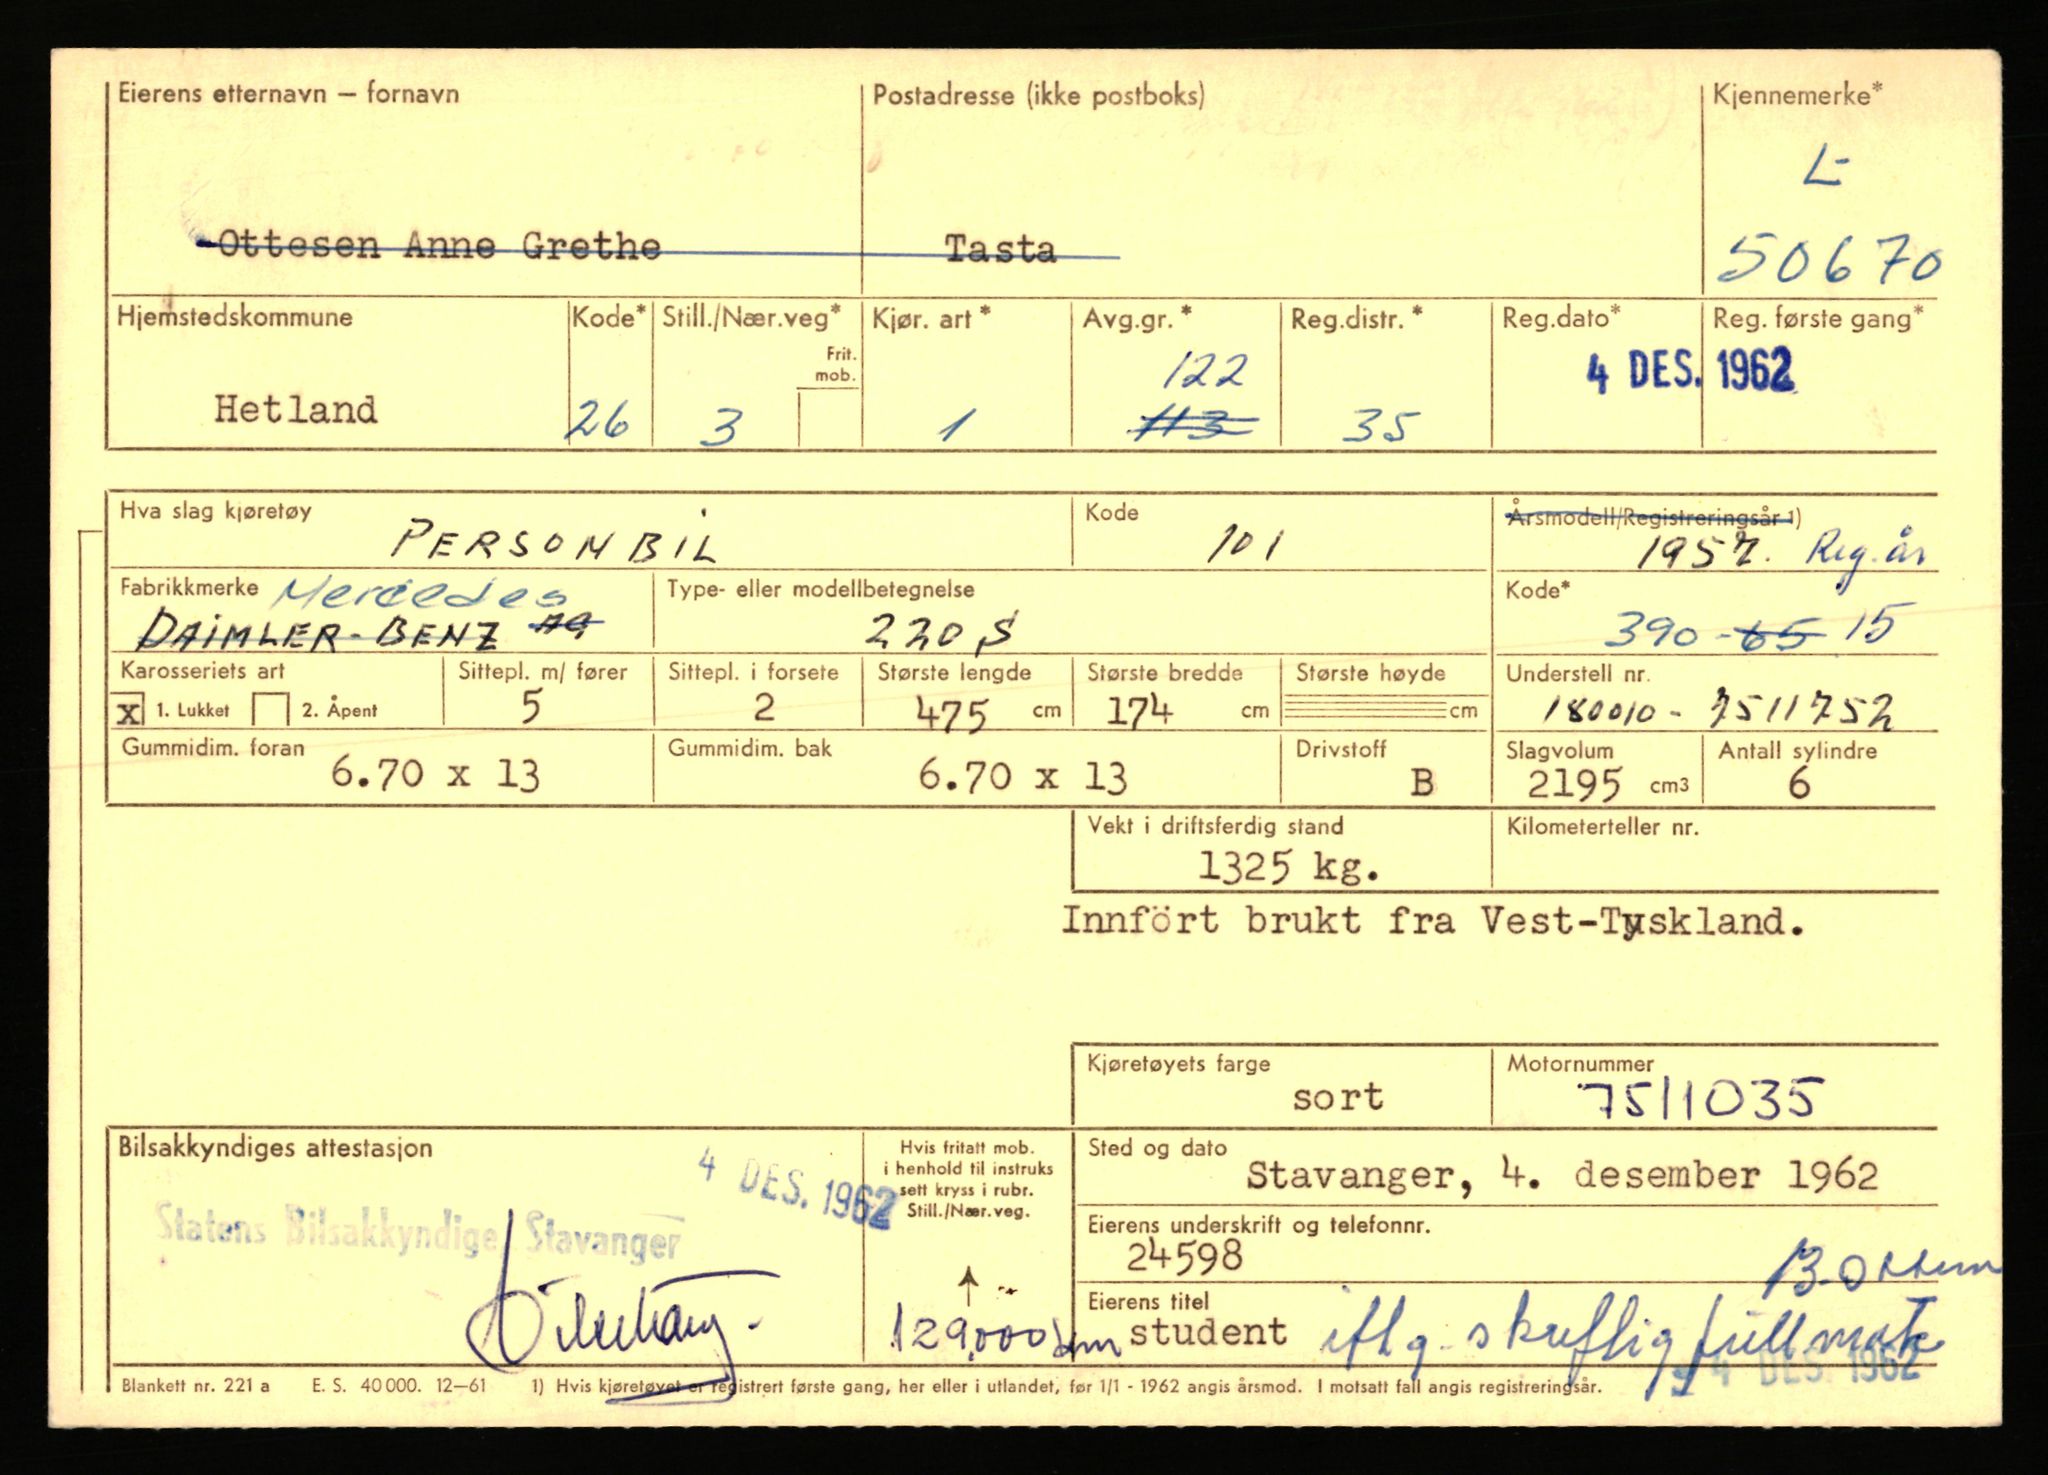 Eierens etternavn — fornavn Postadresse (ikke postboks) Kjennemerke*
L-
Ottesen Anne Grethe Tasta 50670
Hjemstedskommune Kode* Still./Nær.veg* Kjør. art* Avg.gr.* Reg.distr.* Reg.dato* Reg. første gang*
Frit. mob.
122 4 DES. 1962
Hetland 26 3 1 113 35
Hva slag kjøretøy Kode Årsmodell/Registreringsår 1)
PERSONBIL 101 1957. Reg. år
Fabrikkmerke Mercedes Type- eller modellbetegnelse Kode*
DAIMLER-BENZ AG 220 S 390-65 15
Karosseriets art Sittepl. m/ fører Sittepl. i forsete Største lengde Største bredde Største høyde Understell nr.
x 1. Lukket 2. Åpent 5 2 475 cm 174 cm cm 180010-7511752
Gummidim. foran Gummidim. bak Drivstoff Slagvolum Antall sylindre
6.70 x 13 6.70 x 13 B 2195 cm3 6
Vekt i driftsferdig stand Kilometerteller nr.
1325 kg.
Innfört brukt fra Vest-Tyskland.
Kjøretøyets farge Motornummer
sort 7511035
Bilsakkyndiges attestasjon
4 DES. 1962
Statens Bilsakkyndige Stavanger
Hvis fritatt mob.
i henhold til instruks
sett kryss i rubr.
Still./Nær.veg.
129,000 km
Sted og dato
Stavanger, 4. desember 1962
Eierens underskrift og telefonnr.
24598 B. Ottesen
Eierens titel
student iflg. skriftlig fullmakt
4 DES 1962
Blankett nr. 221 a E. S. 40 000. 12—61 1) Hvis kjøretøyet er registrert første gang, her eller i utlandet, før 1/1 - 1962 angis årsmod. I motsatt fall angis registreringsår.